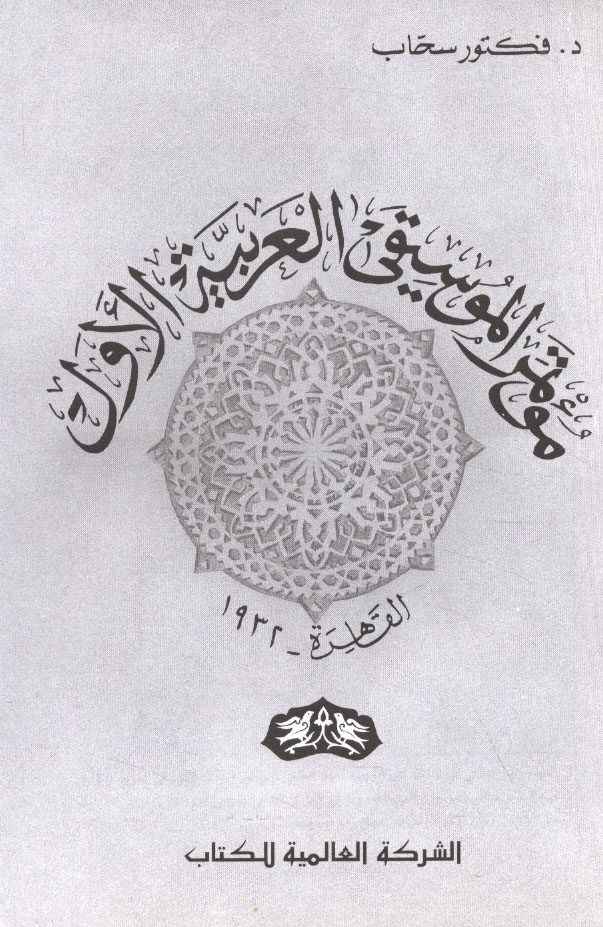 د. فكتور سحّاب
مؤتمر الموسيقى العربية الأول
القاهرة - ١٩٣٢
الشركة العالمية للكتاب